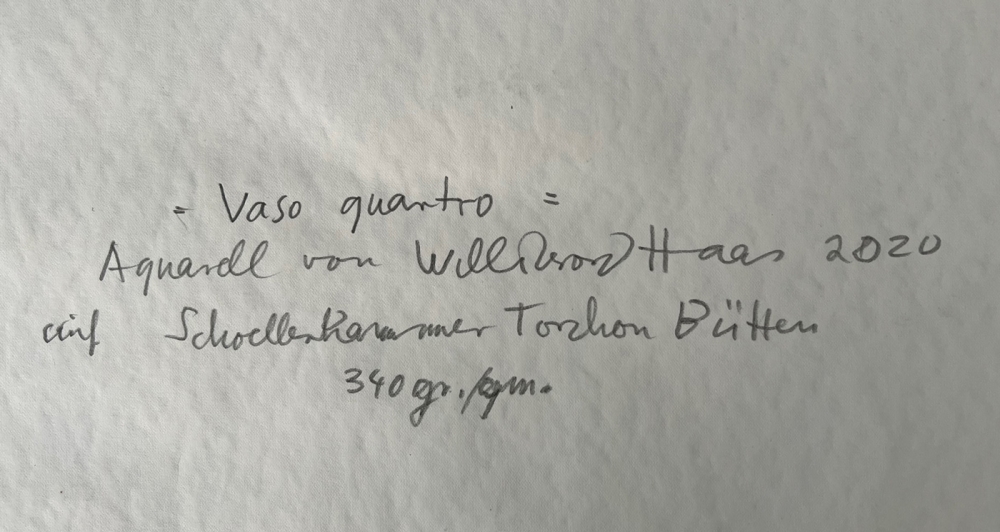 = Vaso quantro =
Aquarell von Haas 2020
auf Schoellershammer Torchon Bütten
340 gr./qm.